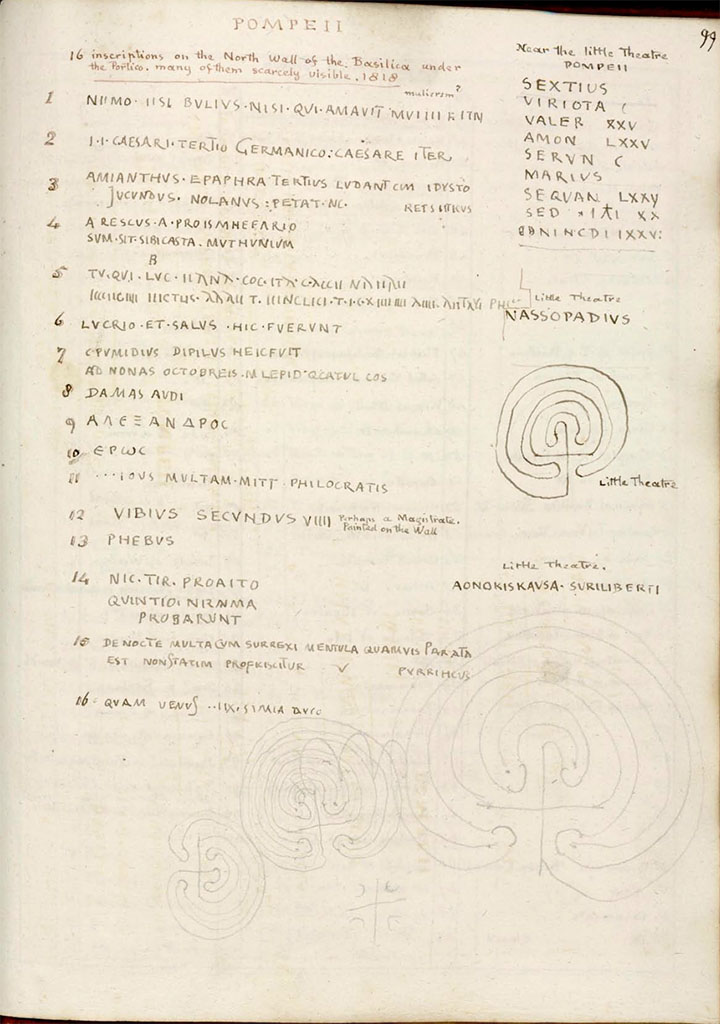 99
POMPEII
16 inscriptions on the North Wall of the Basilica under
the Portico. many of them scarcely visible. 1818
mulierem?
1 NIIMO · IISI BULIVS · NISI · QUI · AMAVIT
2 I · I · CAESARI · TERTIO GERMANICO : CAESARE ITER
3 AMIANTHVS · EPAPHRA TERTIUS LUDANT CUM IDYSTO
JUCUNDUS · NOLANUS : PETAT · NC.
4 ARESCUS · A ·
SUM · SIT · SIBICASTA · MUTHUNIUM
B
5 TV · QVI · LVC ·
6 LVCRIO · ET · SALVS · HIC · FVERVNT
7 CPVMIDIUS DIPILUS HEICFUIT
AD NONAS OCTOBREIS · M LEPID · QCATUL COS
8 DAMAS AUDI
9 ΑΛΕΞΑΝΔΡΟC
10 ΕΡWC
11 ··· IOUS MULTAM · MITT · PHILOCRATIS
12 VIBIVS SECVNDVS VIIII Perhaps a Magistrate.
Painted on the Wall
13 PHEBUS
14 NIC · TIR · PROAITO
QUINTIOI NIRAMA
PROBARUNT
15 DE NOCTE MULTACUM SURREXI MENTULA QUAMVIS PARATA
EST NONSTATIM PROFICISCITUR V PYRRIHCUS
16 QVAM VENUS SIMIA
Near the little Theatre
POMPEII
SEXTIUS
VIRIOTA (
VALER XXV
AMON LXXV
SERVN C
MARIUS
SEQUAN LXXV
SED XX
Little Theatre
NASSOPADIUS
Little Theatre
Little Theatre.
AONOKISKAUSA · SURILIBERTI